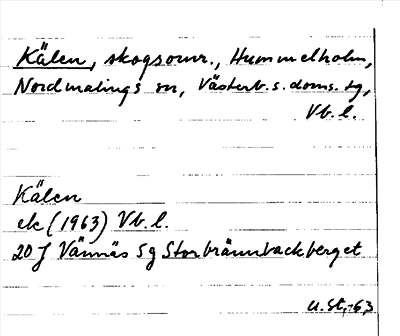 Kälen, skogsomr., Hummelholm,
Nordmalings sn, Västerb. s. doms. tg,
Vb. l.
Kälen
ek (1963) Vb. l.
20 J Vännäs 5 g Storbrännbackberget
U. St., -63